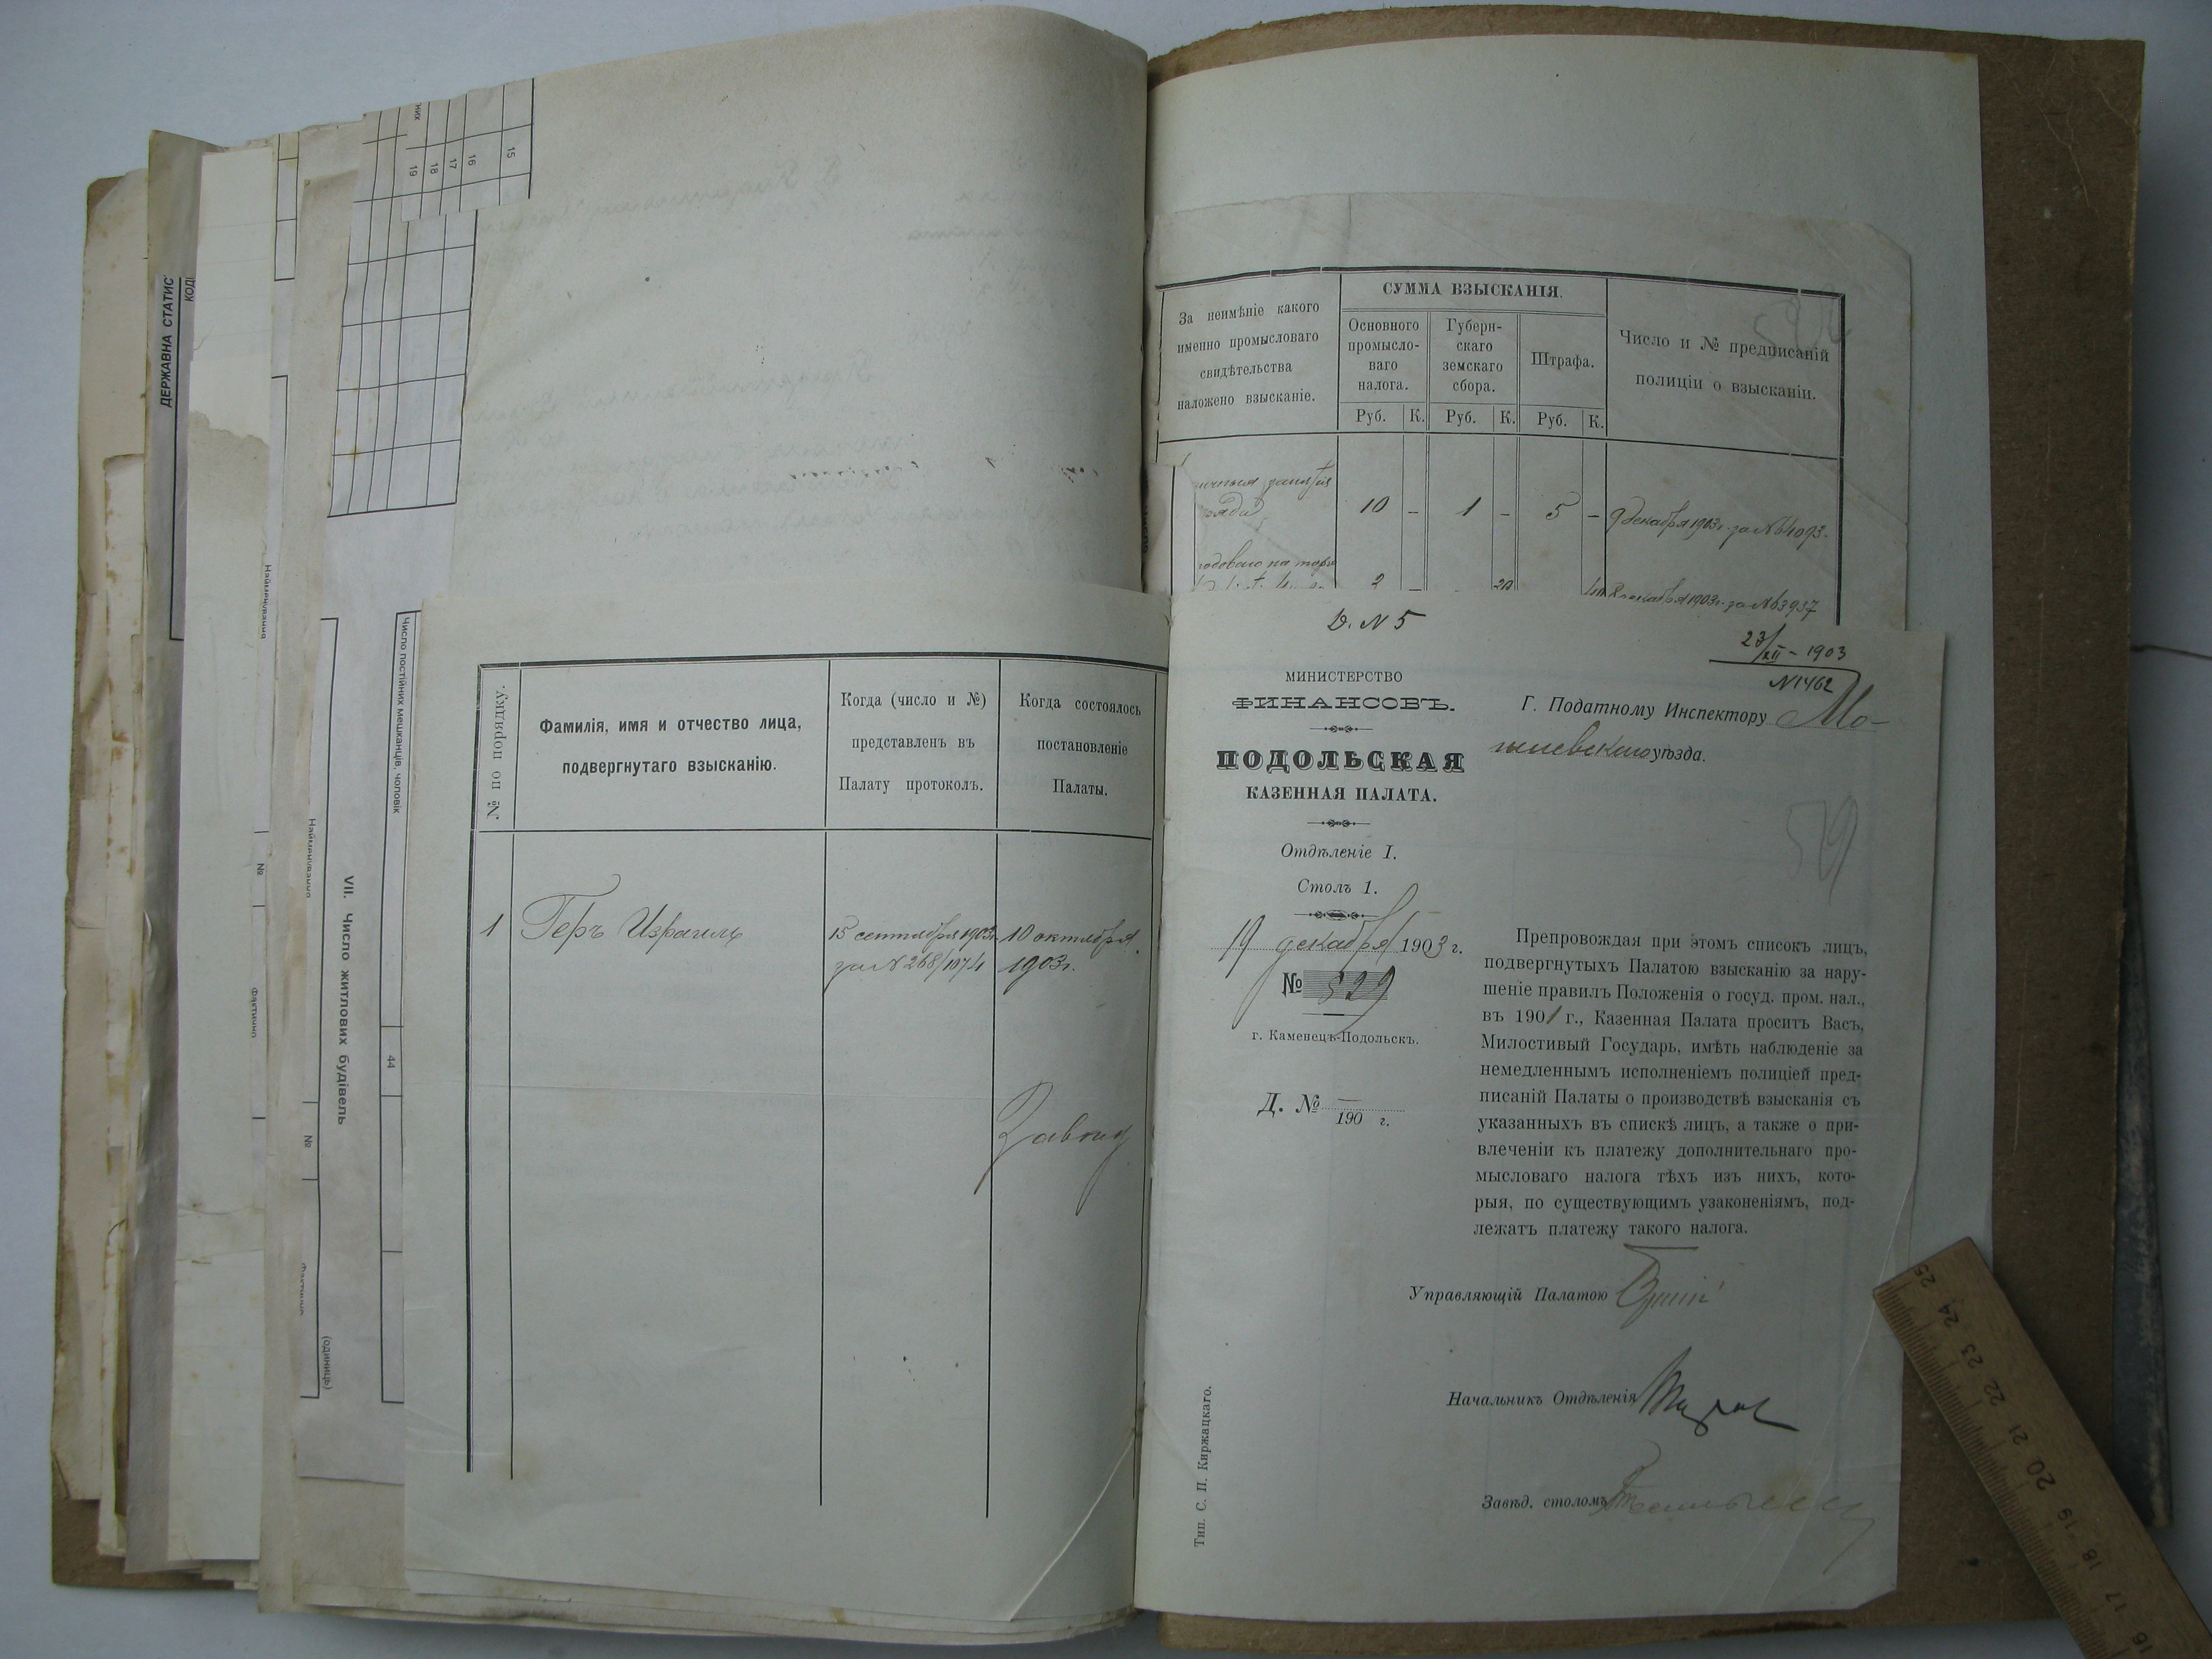 ДЕРЖАВНА СТАТИС
КОД
Найменування
№
Фактично
Найменування
№
них
19
18
17
16
15
VII. Число житлових будівель
(одиниць)
Число постійних мешканців, чоловік
44
№ по порядку.
Фамилія, имя и отчество лица,
подвергнутаго взысканію.
Когда (число и №)
представленъ въ
Палату протоколъ.
Когда состоялось
постановленіе
Палаты.
1
Геръ Израиль
15 сентября 1903г.
за № 268/1074
10 октября
1903г.
За неимѣніе какого
именно промысловаго
свидѣтельства
наложено взысканіе.
СУММА ВЗЫСКАНІЯ.
Основного
промысло-
ваго
налога.
Губерн-
скаго
земскаго
сбора.
Штрафа.
Руб. К. Руб. К. Руб. К.
Число и № предписаній
полиціи о взысканіи.
занятія
10 – 1 – 5 – 9 декабря 1903г. за № 4093.
2 – 20 40 8 декабря 1903г. за № 3937
Д. № 5
23/XII – 1903
№ 1462
МИНИСТЕРСТВО
ФИНАНСОВЪ.
ПОДОЛЬСКАЯ
КАЗЕННАЯ ПАЛАТА.
Отдѣленіе I.
Столъ 1.
19 декабря 1903 г.
№ 529
г. Каменецъ-Подольскъ.
Д. № —
190 г.
Г. Податному Инспектору Мо-
гилевскаго уѣзда.
59
Препровождая при этомъ списокъ лицъ,
подвергнутыхъ Палатою взысканію за нару-
шеніе правилъ Положенія о госуд. пром. нал.,
въ 1901 г., Казенная Палата проситъ Васъ,
Милостивый Государь, имѣть наблюденіе за
немедленнымъ исполненіемъ полиціей пред-
писаній Палаты о производствѣ взысканія съ
указанныхъ въ спискѣ лицъ, а также о при-
влеченіи къ платежу дополнительнаго про-
мысловаго налога тѣхъ изъ нихъ, кото-
рыя, по существующимъ узаконеніямъ, под-
лежатъ платежу такого налога.
Управляющій Палатою
Начальникъ Отдѣленія
Завѣд. столомъ
Тип. С. П. Киржацкаго.
25 24 23 22 21 20 19 18 17 16